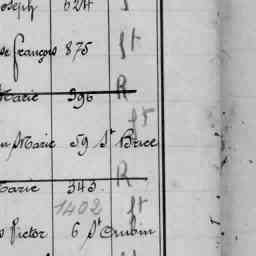 Joseph 624
François 875 St
Marie 396 R
St
Marie 59 St Brice
Marie 343 R
1402 St
Victor 6 St Aubin